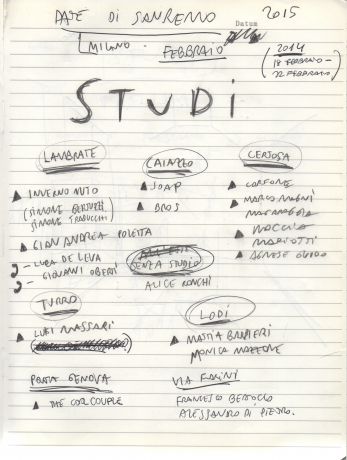 DATE DI SANREMO 2015
Datum
MILANO FEBBRAIO
2014
18 FEBBRAIO -
22 FEBBRAIO
STUDI
LAMBRATE
INVERNO MUTO
(SIMONE BERTUZZI
SIMONE TRABUCCHI)
GIAN ANDREA POLETTA
LUCA DE LEVA
GIOVANNI OBERTI
CAIAZZO
SOAP
BROS
SENZA STUDIO
ALICE RONCHI
CERTOSA
CORFONE
MARCO MAGNI
MACCIA
MARIOTTI
AGNESE GUIDO
TURRO
LUPI MASSARI
LODI
MATTIA BARBIERI
MONICA MAZZONE
PORTA GENOVA
THE COOL COUPLE
VIA FARINI
FRANCESCO BERTOCCO
ALESSANDRO DI PIETRO.